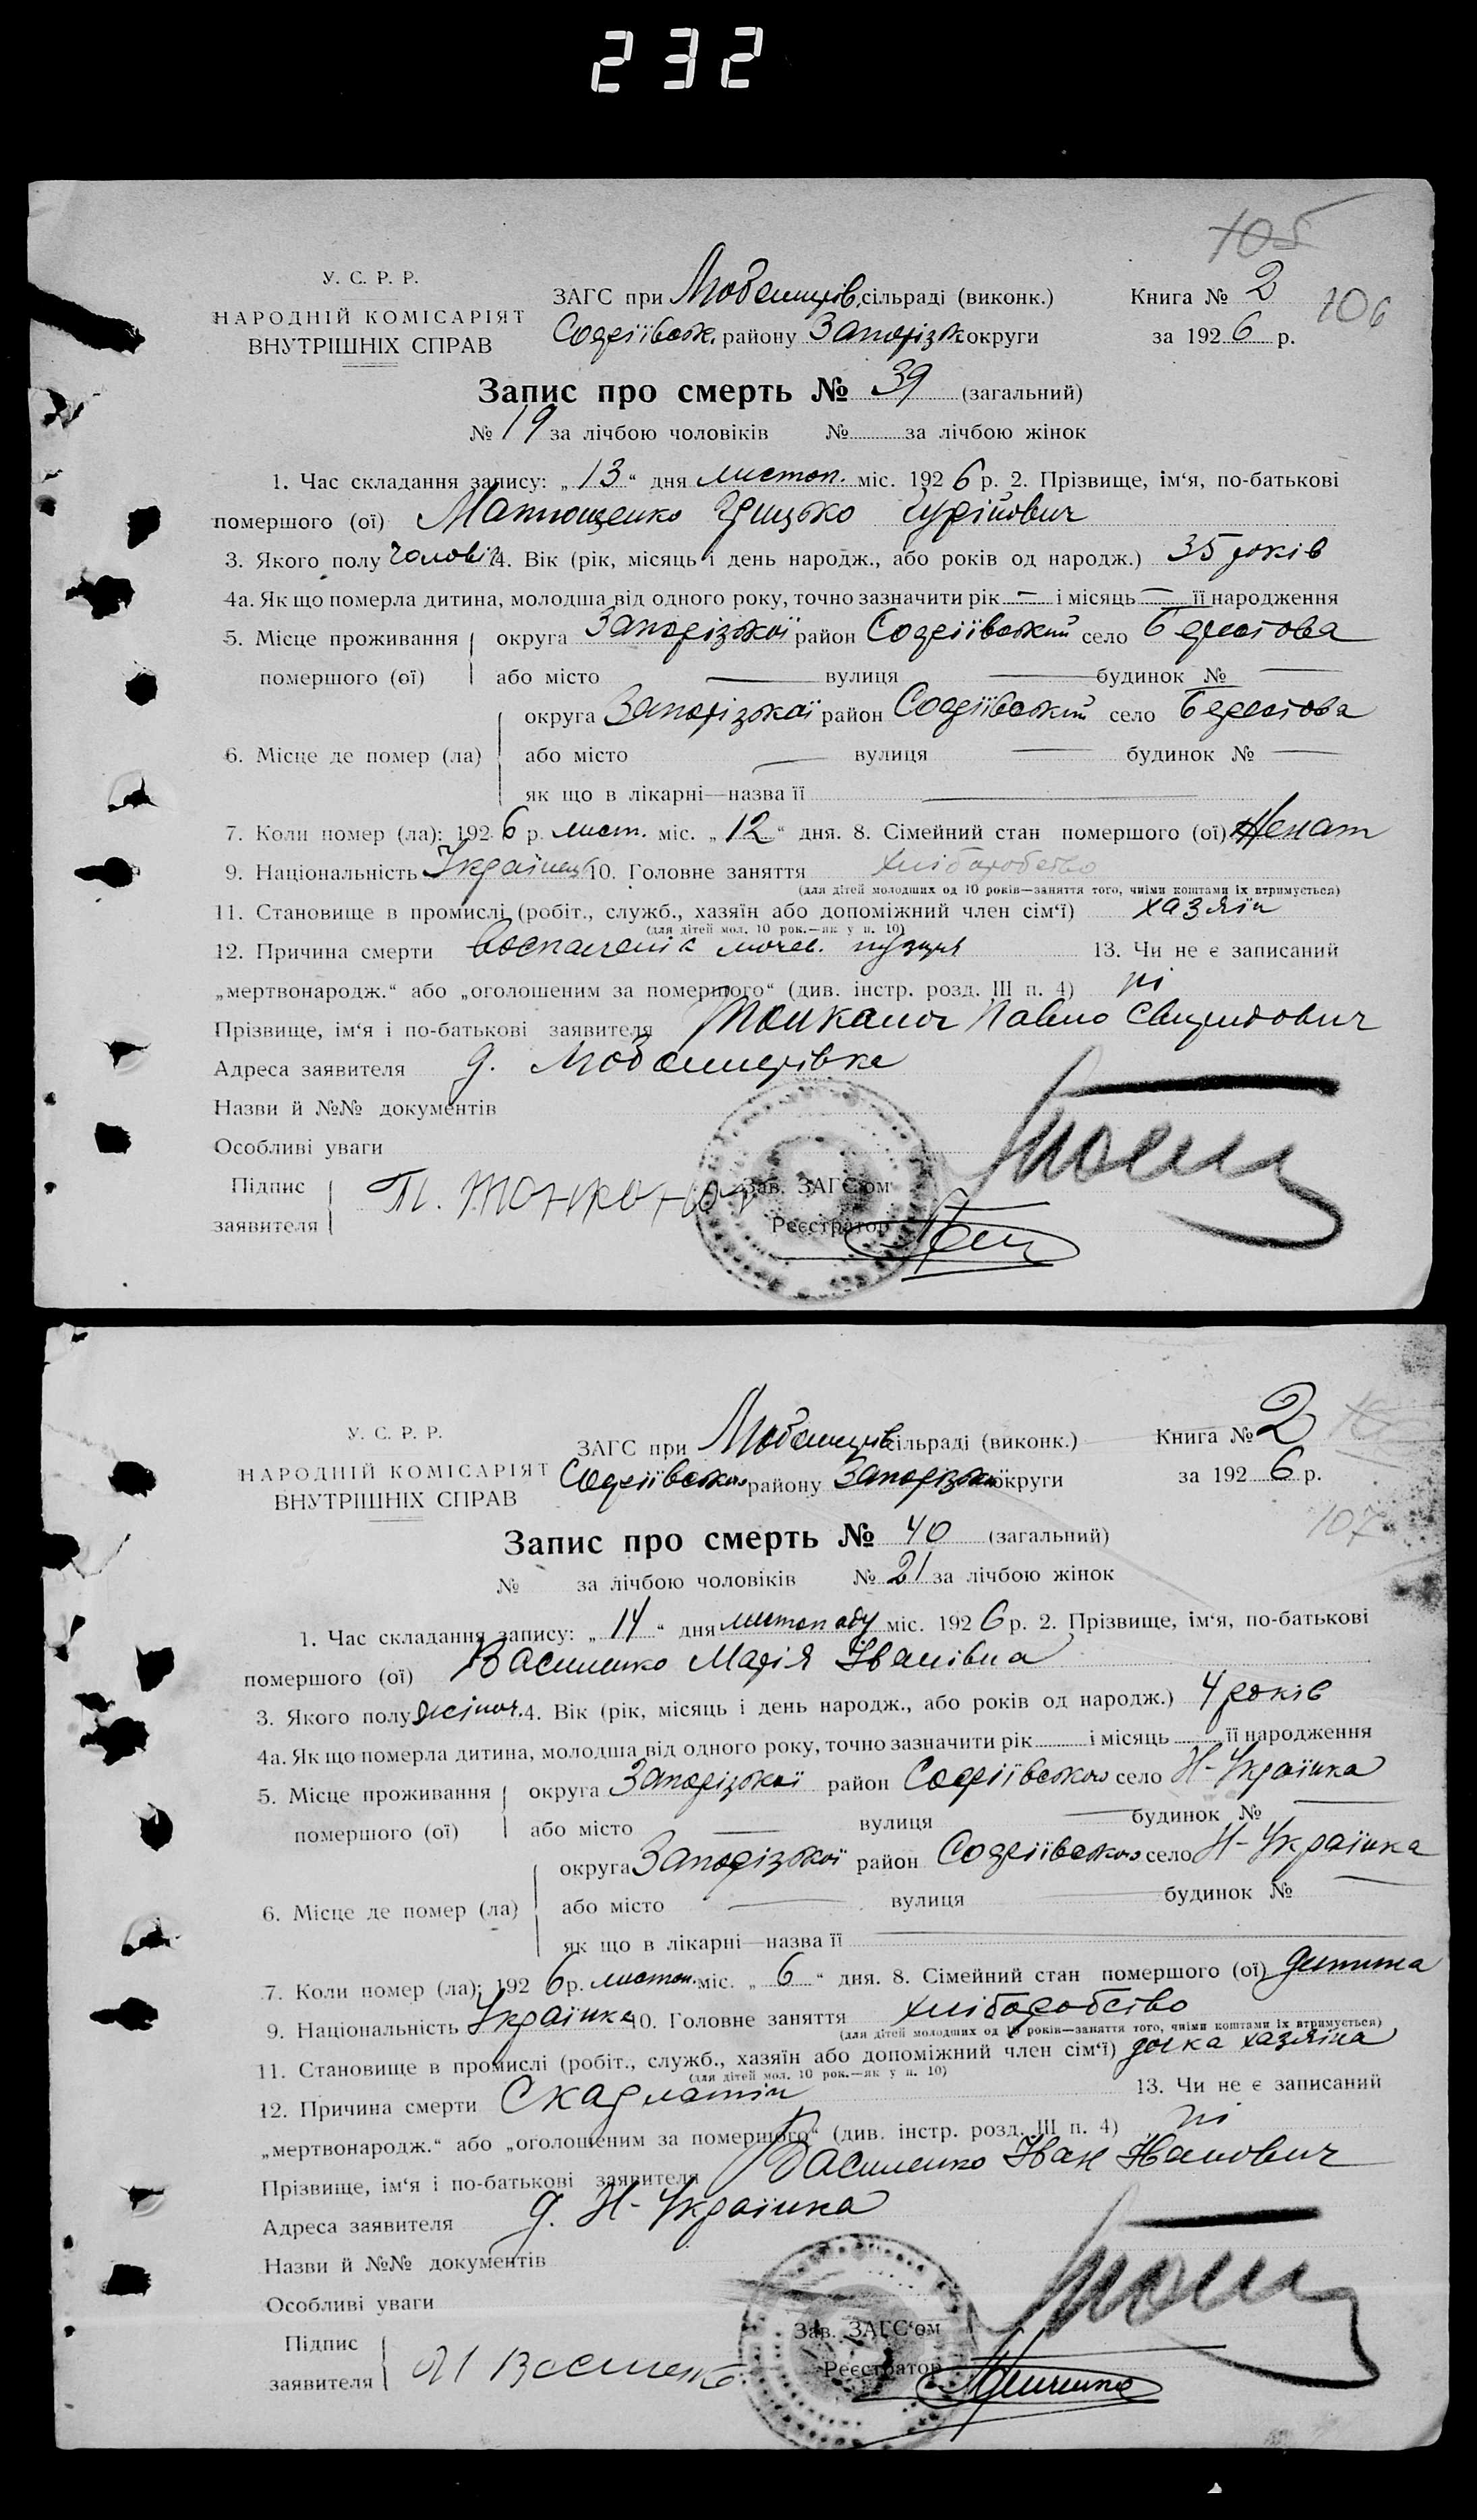 232
105
У. С. Р. Р.
НАРОДНІЙ КОМІСАРІЯТ
ВНУТРІШНІХ СПРАВ
ЗАГС при Любимирів. сільраді (виконк.)
Софіївськ. району Запорізьк округи
Книга № 2
106
за 1926 р.
Запис про смерть № 39 (загальний)
№ 19 за лічбою чоловіків № за лічбою жінок
1. Час складання запису: „13“ дня листоп. міс. 1926 р. 2. Прізвище, ім‘я, по-батькові
помершого (ої) Матющенко Грицько Гурійович
3. Якого полу чоловіч 4. Вік (рік, місяць і день народж., або років од народж.) 35 років
4а. Як що померла дитина, молодша від одного року, точно зазначити рік — і місяць — її народження
5. Місце проживання округа Запорізької район Софіївський село Берестова
помершого (ої) або місто — вулиця — будинок № —
округа Запорізької район Софіївський село Берестова
6. Місце де помер (ла) або місто — вулиця — будинок № —
як що в лікарні—назва її —
7. Коли помер (ла): 1926 р. лист. міс. „12“ дня. 8. Сімейний стан помершого (ої) Женат
9. Національність Українець 10. Головне заняття хліборобство
(для дітей молодших од 10 років—заняття того, чиїми коштами їх втримується)
11. Становище в промислі (робіт., служб., хазяїн або допоміжний член сім‘ї) хазяїн
(для дітей мол. 10 рок.—як у п. 10)
12. Причина смерти воспаленіє мочев. пузиря 13. Чи не є записаний
„мертвонародж.“ або „оголошеним за помершого“ (див. інстр. розд. III п. 4) ні
Прізвище, ім‘я і по-батькові заявителя Павло Свиридович
Адреса заявителя д. Любимирівка
Назви й №№ документів
Особливі уваги
Підпис
заявителя
Зав. ЗАГС‘ом
Реєстратор
У. С. Р. Р.
НАРОДНІЙ КОМІСАРІЯТ
ВНУТРІШНІХ СПРАВ
ЗАГС при Любимирів сільраді (виконк.)
Софіївсько району Запорізьк округи
Книга № 2
за 1926 р.
107
Запис про смерть № 40 (загальний)
№ за лічбою чоловіків № 21 за лічбою жінок
1. Час складання запису: „14“ дня листопаду міс. 1926 р. 2. Прізвище, ім‘я, по-батькові
помершого (ої) Василенко Марія Іванівна
3. Якого полу жіноч. 4. Вік (рік, місяць і день народж., або років од народж.) 4 років
4а. Як що померла дитина, молодша від одного року, точно зазначити рік і місяць її народження
5. Місце проживання округа Запорізької район Софіївського село Н-Українка
помершого (ої) або місто — вулиця — будинок № —
округа Запорізької район Софіївського село Н-Українка
6. Місце де помер (ла) або місто — вулиця — будинок № —
як що в лікарні—назва її —
7. Коли помер (ла): 1926 р. листоп. міс. „6“ дня. 8. Сімейний стан помершого (ої) дитина
9. Національність Українка 10. Головне заняття хліборобство
(для дітей молодших од 10 років—заняття того, чиїми коштами їх втримується)
11. Становище в промислі (робіт., служб., хазяїн або допоміжний член сім‘ї) дочка хазяїна
(для дітей мол. 10 рок.—як у п. 10)
12. Причина смерти Скарлатін 13. Чи не є записаний
„мертвонародж.“ або „оголошеним за помершого“ (див. інстр. розд. III п. 4) ні
Прізвище, ім‘я і по-батькові заявителя Василенко Іван Іванович
Адреса заявителя д. Н-Українка
Назви й №№ документів
Особливі уваги
Підпис
заявителя
Зав. ЗАГС‘ом
Реєстратор